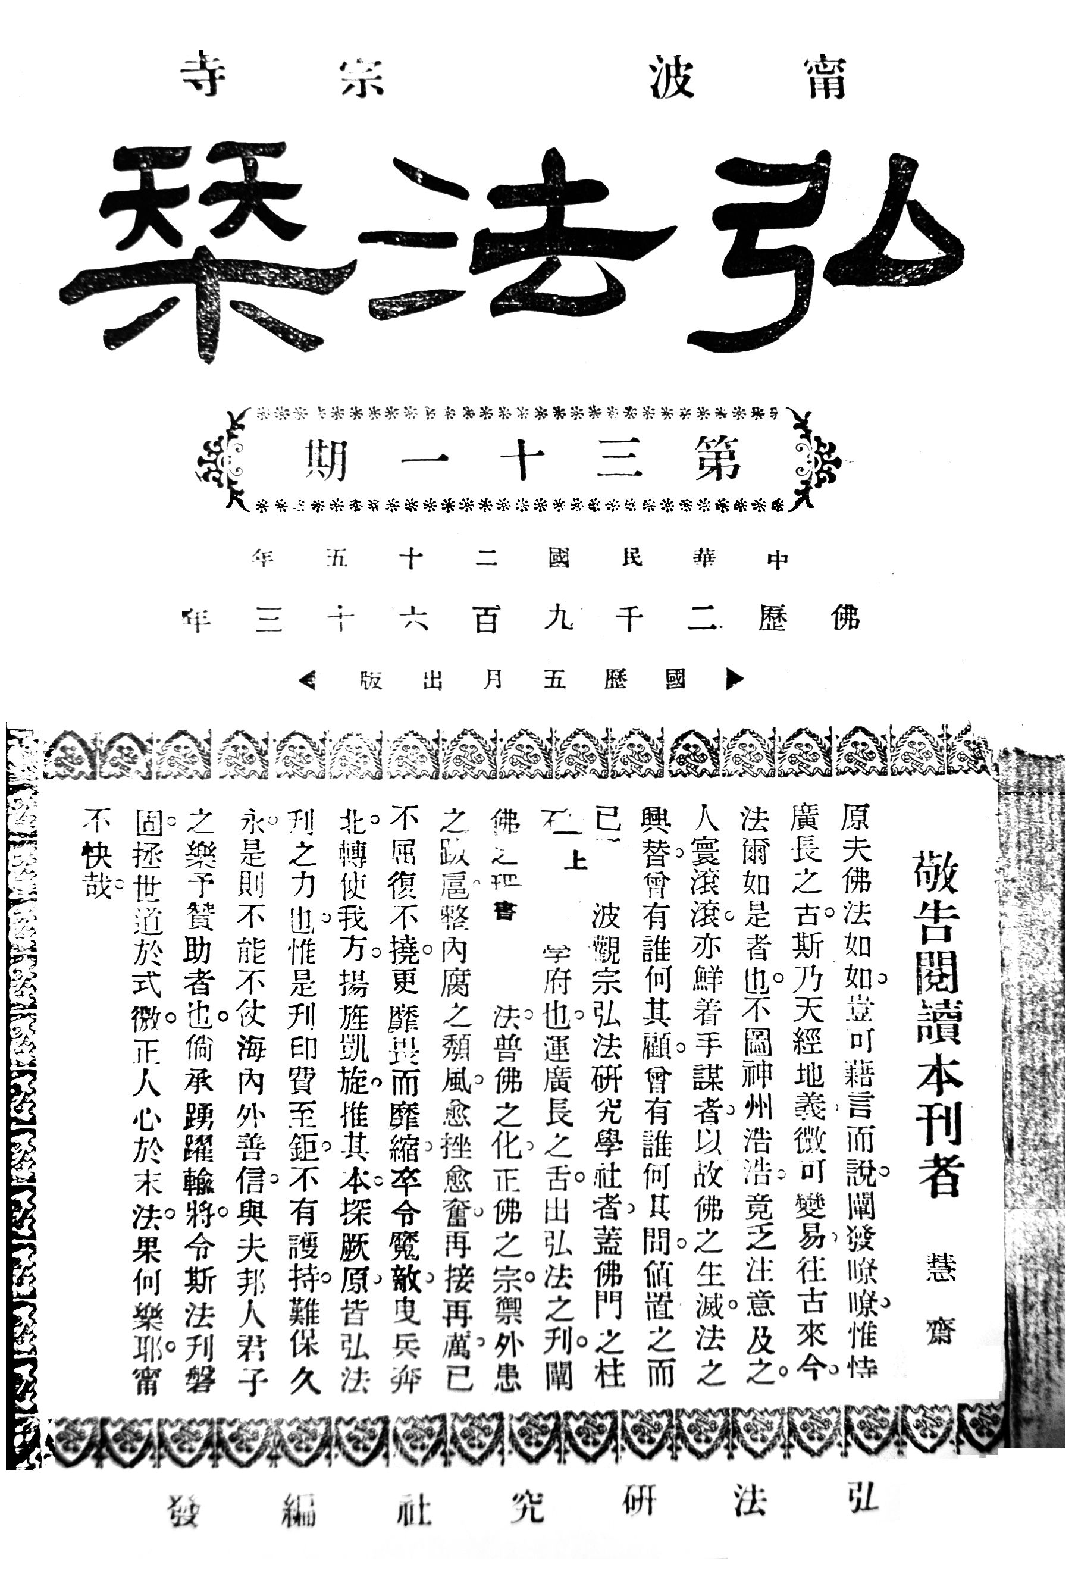 甯波　宗寺
弘法栞
第三十一期
中華民國二十五年
佛歷二千九百六十三年
國歷五月出版
敬告閱讀本刊者　慧齋
原夫佛法如如。豈可藉言而說。闡發嘹嘹。惟恃
廣長之古。斯乃天經地義。微可變易。往古來今。
法爾如是者也。不圖神州浩浩。竟乏注意及之。
人寰滾滾。亦鮮着手謀者。以故佛之生滅。法之
興替。曾有誰何其顧。曾有誰何其問。値置之而
已　波觀宗弘法研究學社者。蓋佛門之柱
石　上　学府也。運廣長之舌。出弘法之刊。闡
佛之理　書　法。普佛之化。正佛之宗。禦外患
之跋扈。整內腐之頹風。愈挫愈奮。再接再厲。已
不屈復不撓。更靡畏而靡縮。卒令魔敵。曳兵奔
北。轉使我方。揚旌凱旋。推其本。探厥原。皆弘法
刊之力也。惟是刊印費至鉅。不有護持。難保久
永。是則不能不仗海內外善信。與夫邦人君子
之樂予贊助者也。倘承踴躍輸將。令斯法刊磐
固。拯世道於式微。正人心於末法。果何樂耶。甯
不快哉。
弘法研究社編發